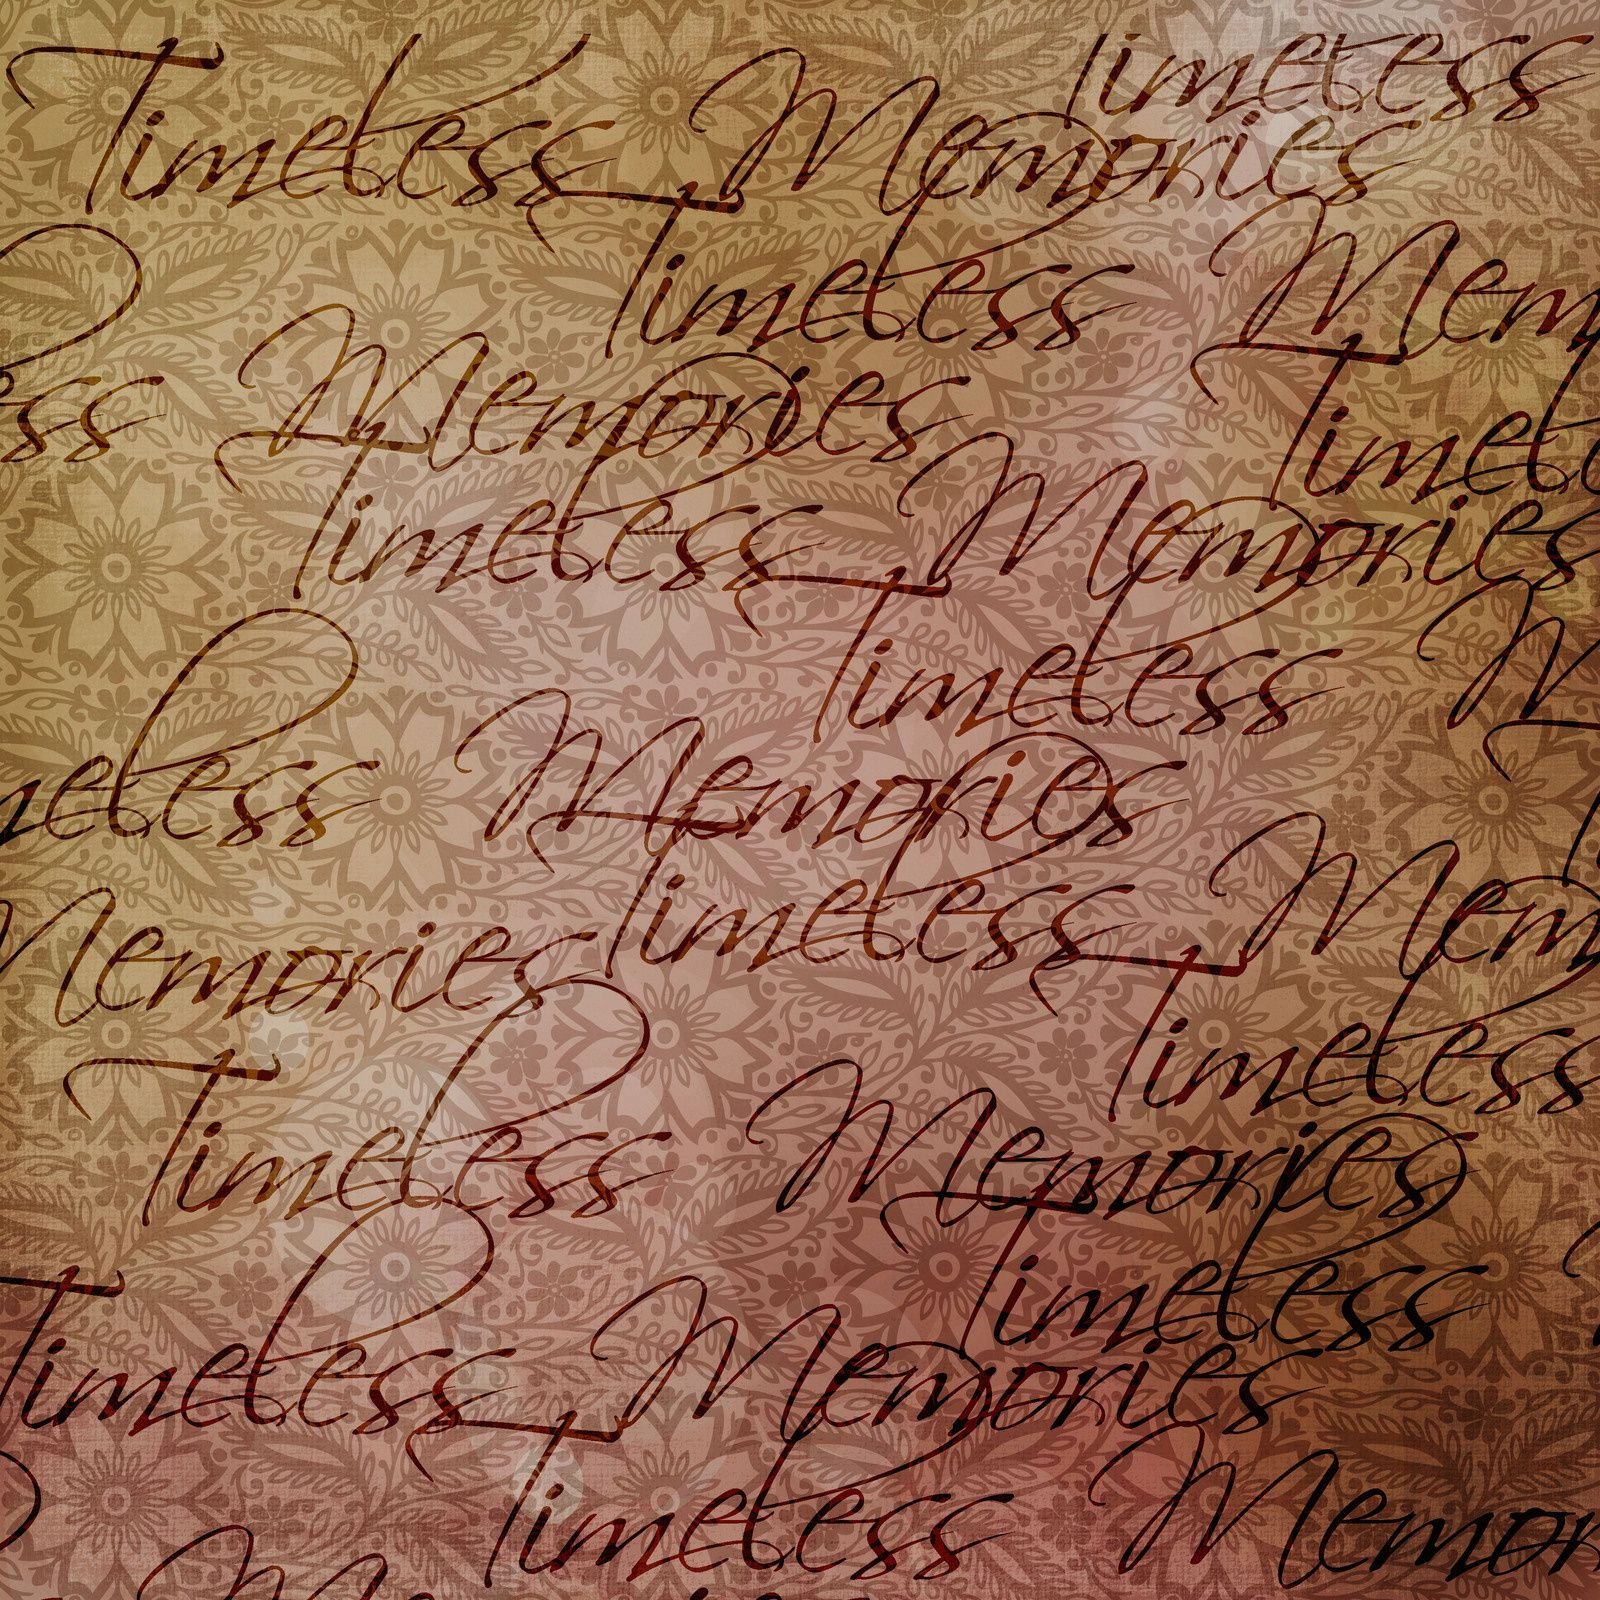 Timeless
Timeless Memories
Timeless Mem
ess Memories Timel
Timeless Memories
Timeless M
meless Memories
Timeless Mem
Memories Timeless
Timeless Memories
Timeless
Timeless Memories
Timeless Memor